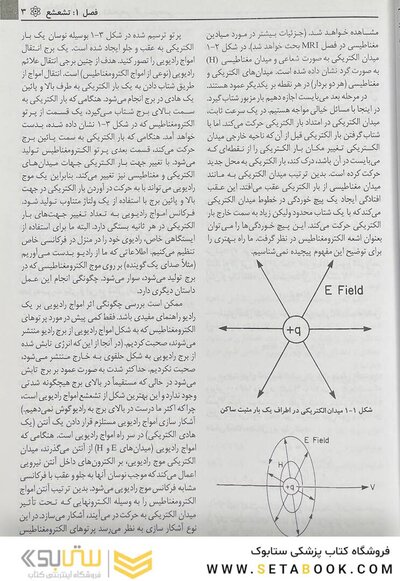 فصل ۱: تشعشع ۳
مشاهده خواهد شد. (جزئیات بیشتر در مورد میادین
مغناطیسی در فصل MRI بحث خواهد شد). در شکل ۲-۱
میدان الکتریکی به صورت شعاعی و میدان مغناطیسی (H)
به صورت گرد نشان داده شده است. میدان‌های الکتریکی و
مغناطیسی (هر دو بردار) در هر نقطه بر یکدیگر عمود هستند.
در مرحله بعد می‌بایست اجازه دهیم بار مزبور شتاب گیرد.
در اینجا با مسائل خیالی مواجه هستیم. در یک سرعت ثابت،
میدان الکتریکی در امتداد بار الکتریکی حرکت می‌کند، اما با
شتاب گرفتن بار الکتریکی قبل از آن که ناحیه خارجی میدان
الکتریکی تغییر مکان بار الکتریکی را از نقطه‌ای که
می‌بایست در آن باشد، درک کند، بار الکتریکی به محل جدید
حرکت کرده است. بدین ترتیب میدان الکتریکی به مانند
میدان مغناطیسی از بار الکتریکی عقب می‌افتد. این عقب
افتادگی ایجاد یک پیچ خوردگی در خطوط میدان الکتریکی
می‌کند که با یک شتاب محدود ولیکن زیاد به سمت خارج بار
الکتریکی حرکت می‌کند. این پیچ خوردگی‌ها را می‌توان
بعنوان اشعه الکترومغناطیس در نظر گرفت. ما راه بهتری را
برای توضیح این مفهوم پیچیده نمی‌شناسیم.
E Field
+q
شکل ۱-۱ میدان الکتریکی در اطراف یک بار مثبت ساکن
E Field
+q
V
پرتو ترسیم شده در شکل ۳-۱ بوسیله نوسان یک بار
الکتریکی به عقب و جلو ایجاد شده است. یک برج انتقال
امواج رادیویی را تصور کنید. هدف از چنین برجی انتقال امواج
رادیویی (نوعی از امواج الکترومغناطیس) است. انتقال امواج از
طریق شتاب دادن به یک بار الکتریکی به طرف بالا و پائین
یک هادی در برج انجام می‌شود. هنگامی که بار الکتریکی به
سمت بالای برج شتاب می‌گیرد، یک قسمت از پرتو
الکترومغناطیس که در شکل ۳-۱ نشان داده شده، بدست
خواهد آمد. هنگامی که بار الکتریکی به سمت پائین برج
حرکت می‌کند، قسمت بعدی پرتو الکترومغناطیس تولید
می‌شود. با تغییر جهت بار الکتریکی جهات میدان‌های
الکتریکی و مغناطیسی نیز تغییر می‌کند. بنابراین یک موج
رادیویی می‌تواند با به حرکت در آوردن بار الکتریکی در جهت
بالا و پائین برج با استفاده از یک ولتاژ متناوب تولید شود.
فرکانس امواج رادیویی به تعداد تغییر جهت‌های بار
الکتریکی در هر ثانیه بستگی دارد. البته ما برای استفاده از
ایستگاهی خاص، رادیوی خود را در منزل در فرکانسی خاص
تنظیم می‌کنیم. اطلاعاتی که ما از رادیو بدست می‌آوریم
(مثلاً صدای یک گوینده) بر روی موج الکترومغناطیس که در
برج تولید می‌شود، سوار می‌شود. چگونگی انجام این عمل
داستان دیگری دارد.
ممکن است بررسی چگونگی اثر امواج رادیویی بر یک
رادیو راهنمای مفیدی باشد. فقط کمی پیش در مورد پرتوهای
الکترومغناطیس که به شکل امواج رادیویی از برج رادیو منتشر
می‌شوند، صحبت کردیم. (در آنجا از این که انرژی تابش شده
از برج رادیویی به شکل حلقوی به خارج منتشر می‌شود،
صحبت نکردیم. حداکثر شدت به صورت عمود بر برج تابش
می‌شود در حالی که مستقیماً در بالای برج هیچگونه شدتی
وجود ندارد و این بهترین شکل از تشعشع امواج رادیویی است،
چرا که اکثر ما درست در بالای برج به رادیو گوش نمی‌دهیم.)
آشکار سازی امواج رادیویی مستلزم قرار دادن یک آنتن (یک
هادی الکتریکی) در سر راه امواج رادیویی است. هنگامی که
امواج رادیویی (میدان‌های E و H) از آنتن می‌گذرند، میدان
الکتریکی موج رادیویی، بر الکترون‌های داخل آنتن نیرویی
اعمال می‌کند که موجب نوسان آنها به جلو و عقب با فرکانسی
مشابه فرکانس موج رادیویی می‌شود. بدین ترتیب آنتن امواج
الکترومغناطیس را به وسیله الکترونهایی که تحت تأثیر
میدان الکتریکی به حرکت در می‌آیند، آشکار می‌سازد. در این
نوع آشکار سازی به نظر می‌رسد پرتوهای الکترومغناطیس
فروشگاه کتاب پزشکی ستابوک
WWW.SETABOOK.COM
ستابوک
فروشگاه اینترنتی کتاب